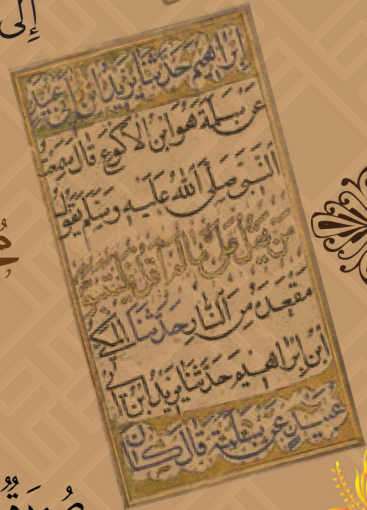 إلى
إبراهيم حدثنا يزيد ابن أبي عبيد
عن سلمة هو ابن الاكوع قال سمعت
النبي صلى الله عليه وسلم يقول
من يقل على ما لم أقل فليتبوأ
مقعده من النار حدثنا المكي
ابن ابراهيم حدثنا يزيد ابن أبي
عبيد عن سلمة قال كان